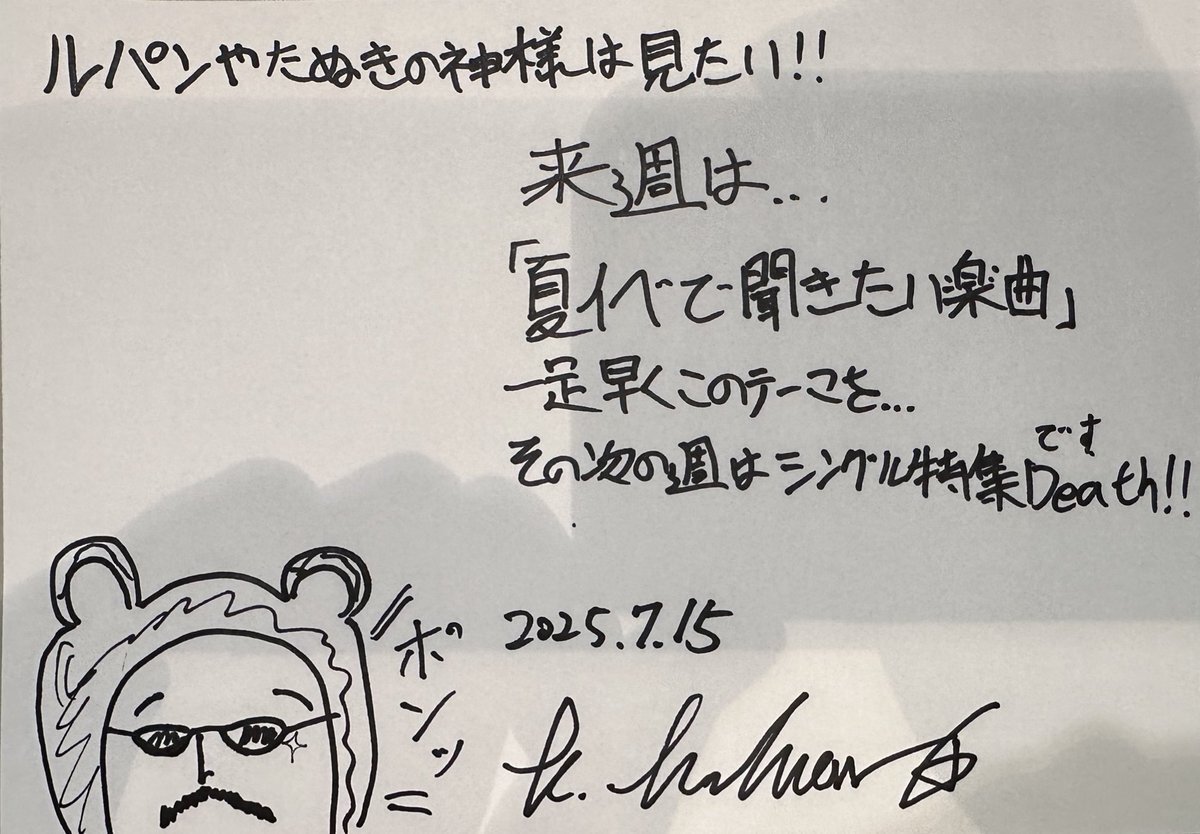 ルパンやたぬきの神様は見たい!!
来週は...
「夏イベで聞きたい楽曲」
一足早くこのテーマを...
その次の週はシングル特集Death!!
です
ポンッ
2025.7.15